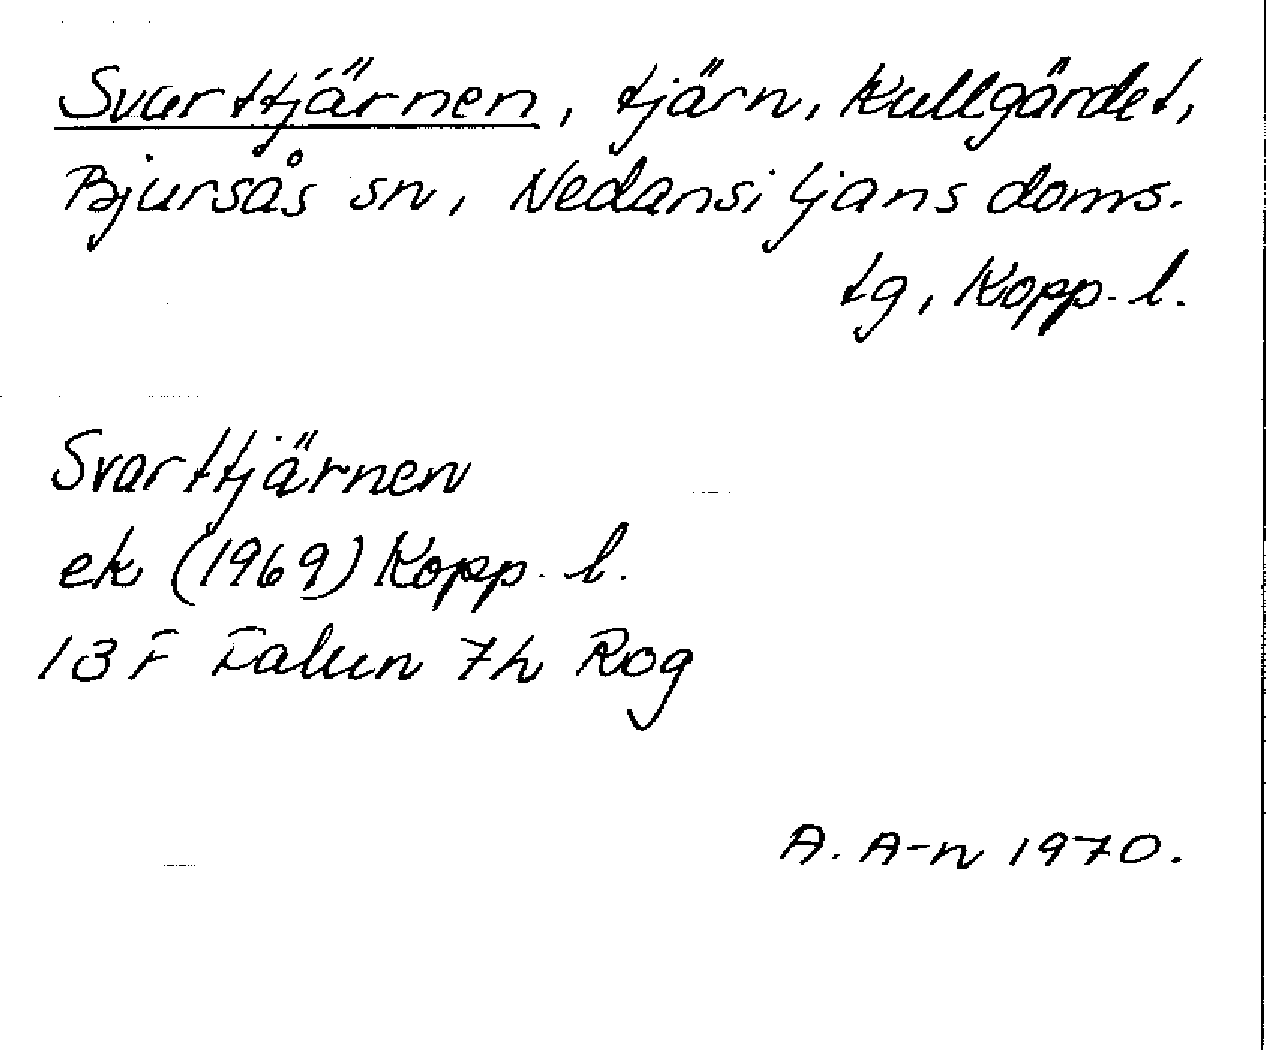 Svarttjärnen, tjärn, Kullgärdet,
Bjursås sn, Nedansiljans doms.
tg, Kopp. l.
Svarttjärnen
ek (1969) Kopp. l.
13 F Falun 7h Rog
A. A-n 1970.